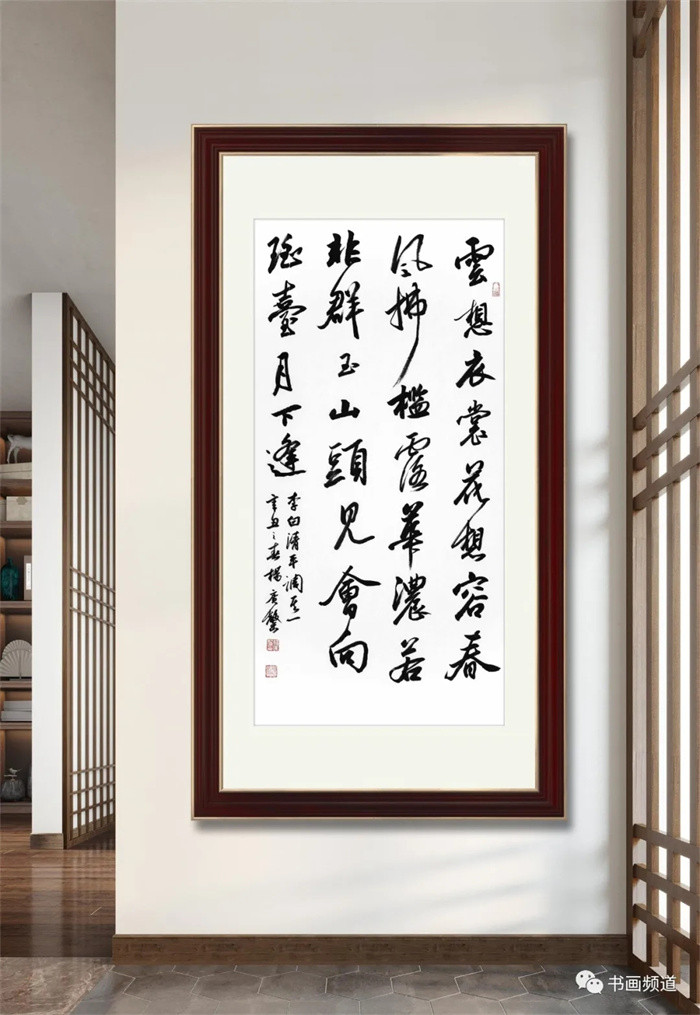 雲想衣裳花想容春
風拂檻露華濃若
非群玉山頭見會向
瑤臺月下逢
李白清平調其一
辛丑之春楊廣馨
书画频道